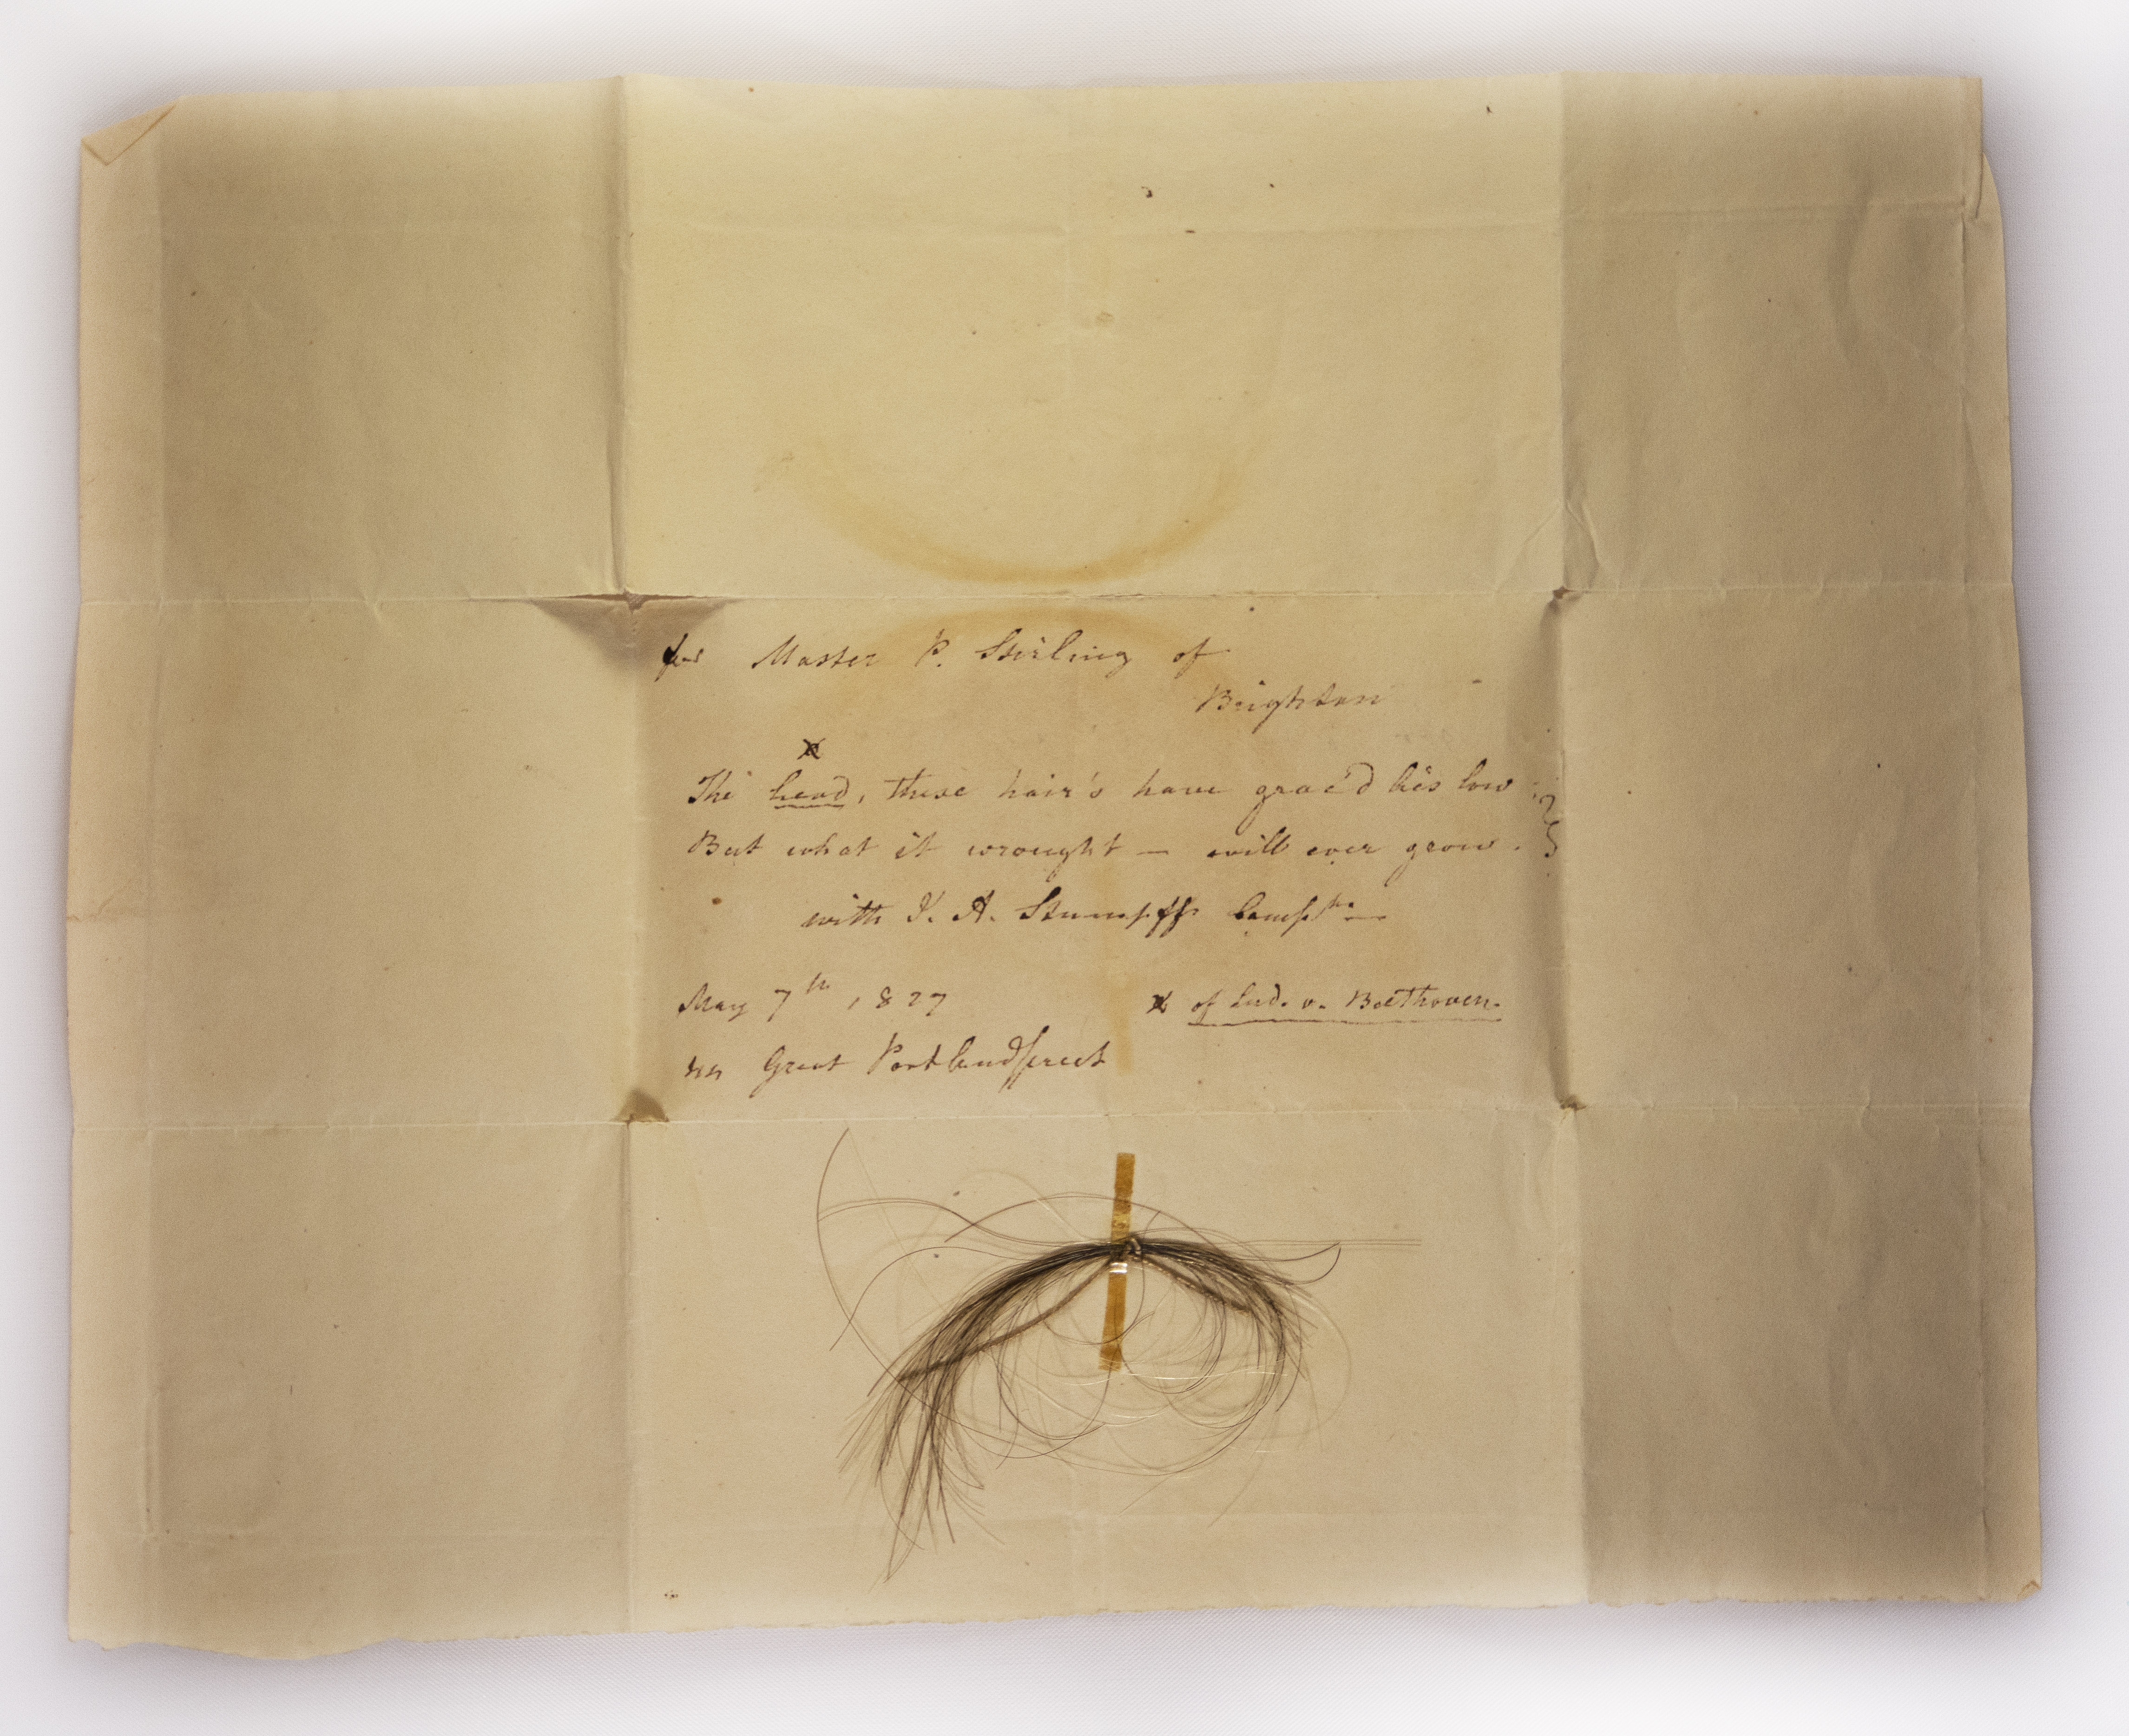 for Master P. Stirling of
Brighton
x
The head, these hair's have grac'd lies low:
But what it wrought — will ever grow.
with J. A. Stumpff Compts
May 7th 1827
x of Lud. v. Beethoven.
44 Great Portland Street